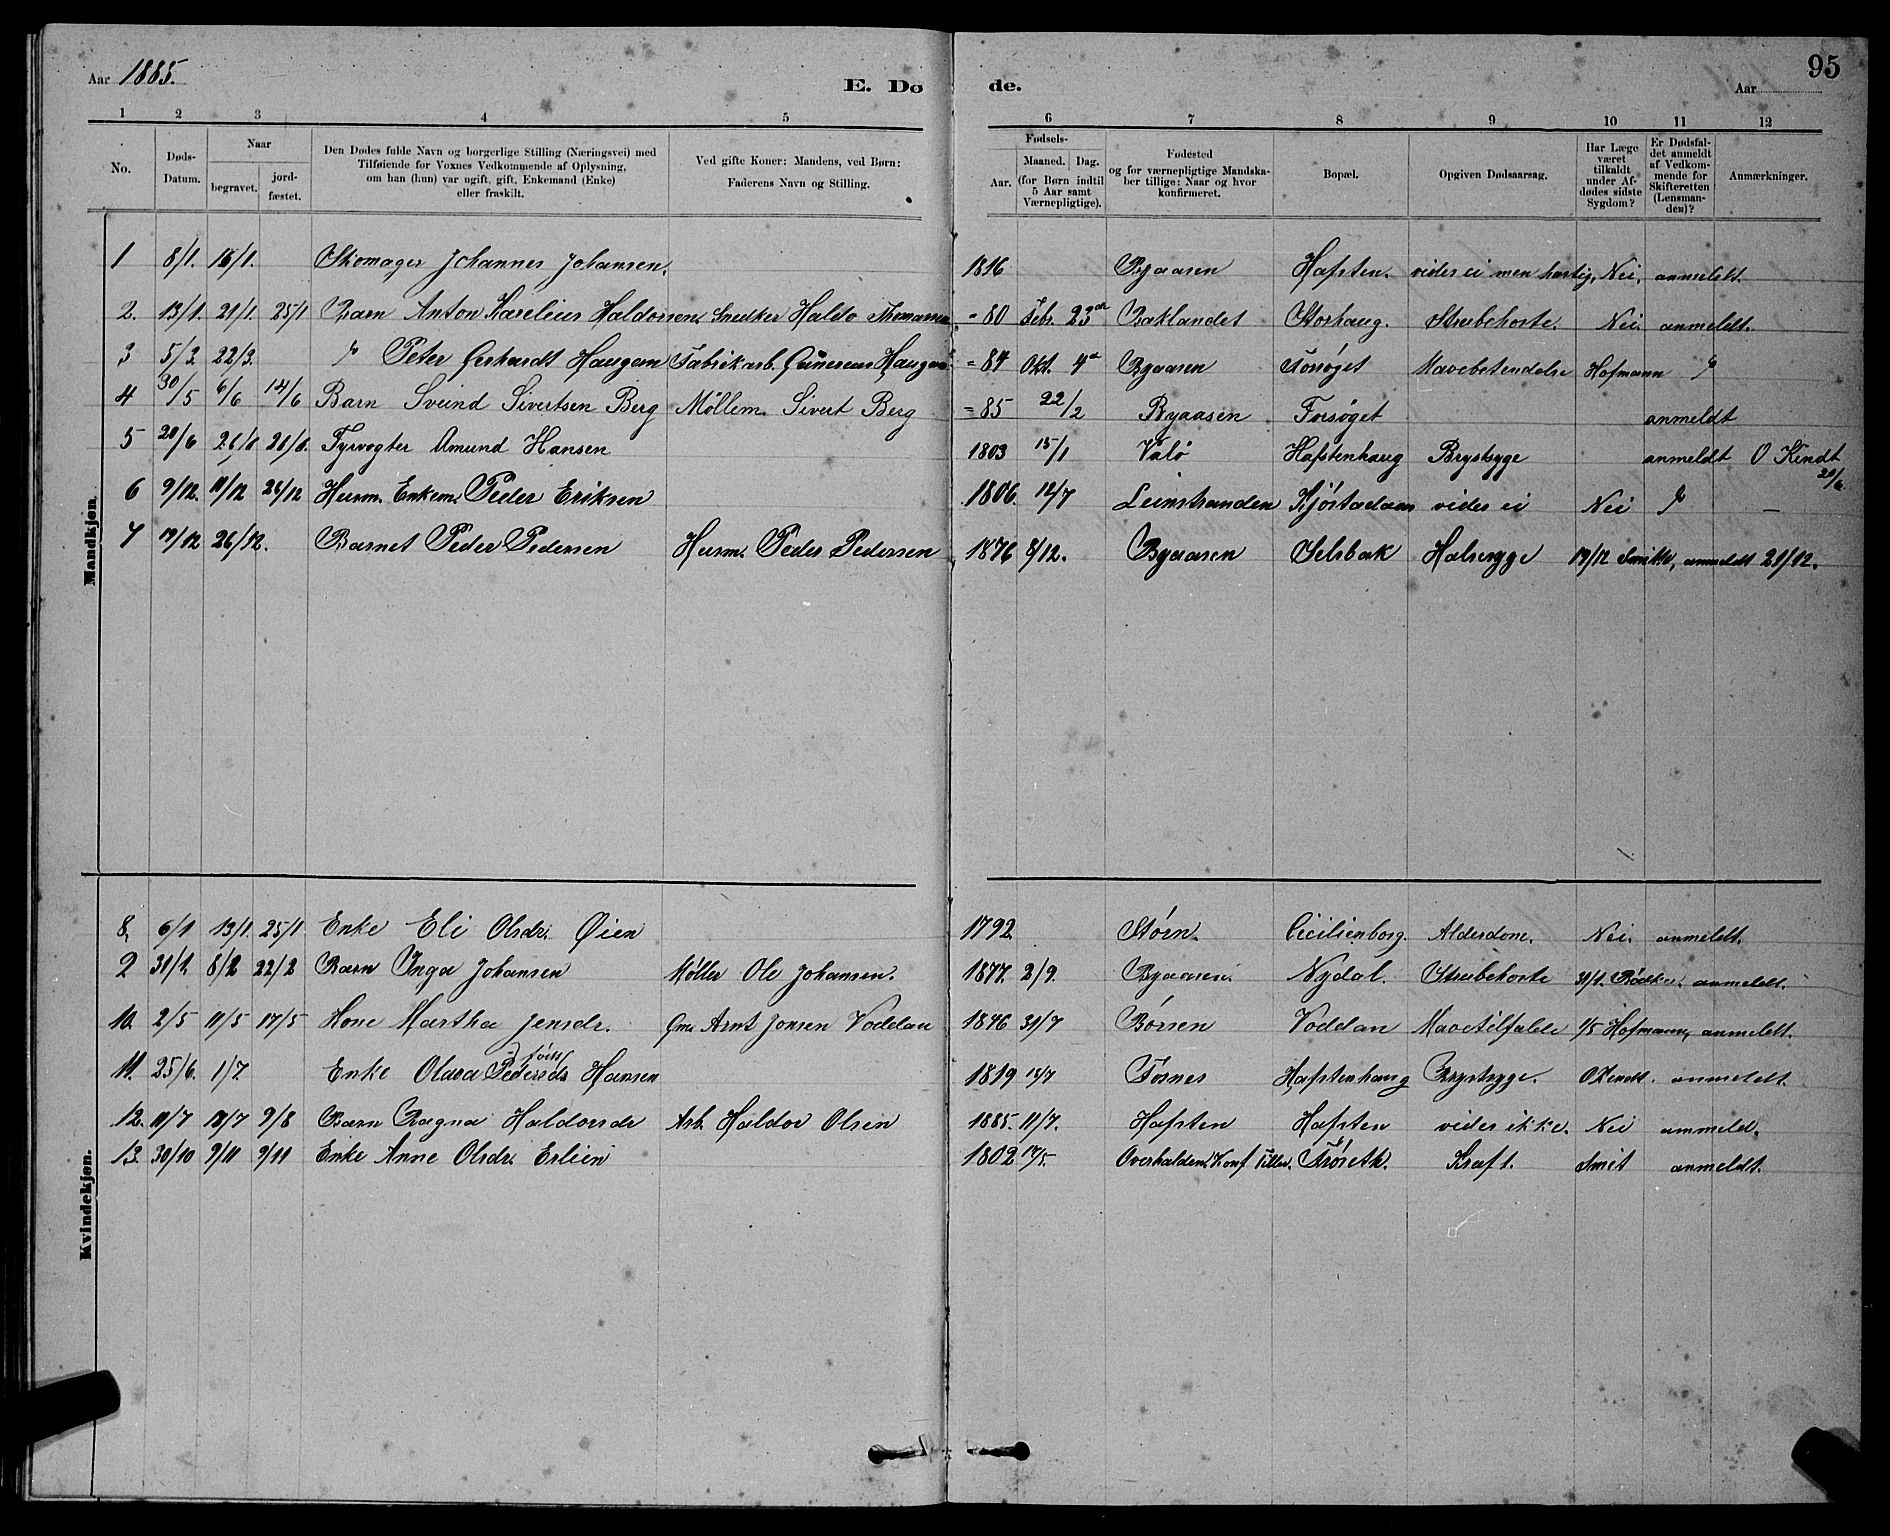 95
Aar 1885.
E. Dø de.
Aar
1 2 3 4 5 6 7 8 9 10 11 12
No.
Døds-Datum.
Naar
begravet.
jord-fæstet.
Den Dødes fulde Navn og borgerlige Stilling (Næringsvei) med
Tilføiende for Voxnes Vedkommende af Oplysning,
om han (hun) var ugift, gift, Enkemand (Enke)
eller fraskilt.
Ved gifte Koner: Mandens, ved Børn:
Faderens Navn og Stilling.
Fødsels-
Aar.
Maaned. Dag.
(for Børn indtil
5 Aar samt
Værnepligtige).
Fødested
og for værnepligtige Mandska-
ber tillige: Naar og hvor
konfirmeret.
Bopæl.
Opgiven Dødsaarsag.
Har Læge
været
tilkaldt
under Af-
dødes sidste
Sygdom?
Er Dødsfal-
det anmeldt
af Vedkom-
mende for
Skifteretten
(Lensman-
den)?
Anmærkninger.
Mandkjøn.
1 8/1. 16/1. Skomager Johannes Johansen. 1816 Byaasen Hafsten. vides ei men hastig. Nei. anmeldt.
2. 13/1. 21/1. 25/1 Barn Anton Karelius Haldorsen. Snedker Haldo Thomassen - 80 Febr. 23de Baklandet Storhaug. Strubehoste. Nei. anmeldt.
3 5/3 22/3. " Peter Gerhardt Haugan Fabrikarb. Gunerius Haugan - 84 Okt. 4de Byaasen Forsøget Mavebetændelse Hofmann "
4 30/5 6/6 14/6 Barn Sveind Sivertsen Berg Møllem. Sivert Berg - 85 22/2 Byaasen Forsøget anmeldt
5 20/6 26/6 28/6. Fyrvogter Amund Hansen 1803 15/1 Valø Hafstenhaug Brystsyge anmeldt O Kindt 20/6.
6 9/12. 19/12 26/12 Husm. Enkem. Peder Eriksen 1806. 12/7 Leinstranden Kjøstadaun vides ei Nei " -
7 19/12 26/12. Barnet Peder Pedersen Husm. Peder Pedersen 1876 8/12. Byaasen Selsbak Halssyge 19/12 Smitt, anmeldt 21/12.
Kvindekjøn.
8. 6/1 13/1. 25/1 Enke Eli Olsdr. Øien 1792. Støren. Ceciliénborg. Alderdom. Nei. anmeldt.
9 31/1. 8/2 22/2 Barn Inga Johansen Møller Ole Johansen. 1877. 2/9. Byaasen. Nydal. Strubehoste 31/1. Bødtker. anmeldt.
10. 2/5 11/5 17/5 Kone Martha Jensdr. Gm. Arnt Jonsen Voddan 1846 31/7 Børsen Voddan Mavetilfælde 1/5 Hofmann, anmeldt.
11. 25/6. 1/7. Enke Olava Pedersdr født Hansen 1819 15/7 Fosnes Hafstenhaug Brystsyge. O Kindt. anmeldt.
12. 11/7 18/7 9/8 Barn Ragna Haldorsdr Arb. Haldor Olsen 1885. 11/7. Hafsten Hafsten vides ikke. Nei anmeld.
13. 30/10 9/11 9/11 Enke Anne Olsdr. Erlien 1802 17/5. Overhalden. Konf Tiller. Frøseth. Kræft. Smit anmeldt.